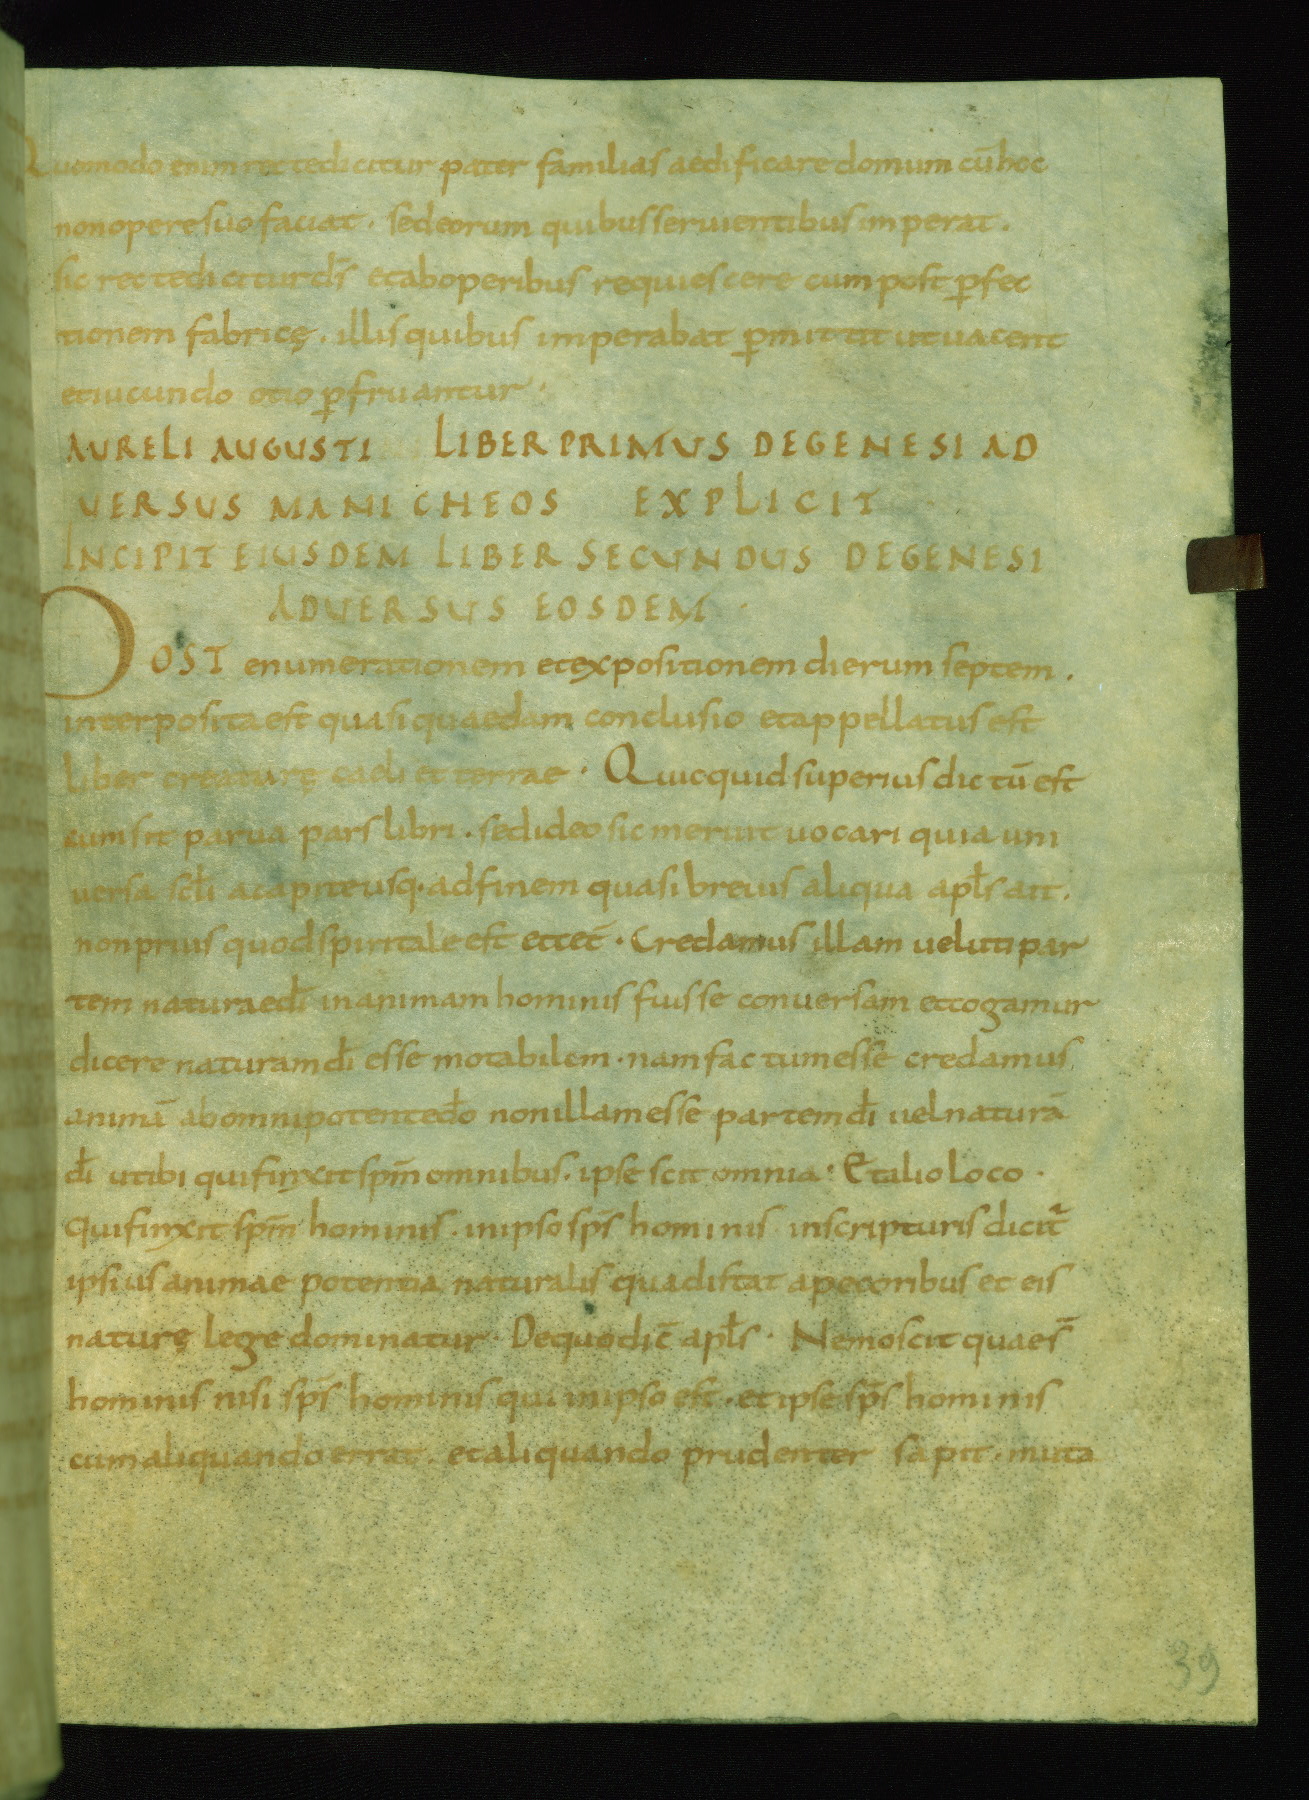 Quomodo enim recte dicitur pater familias aedificare domum cū hoc
non opere suo faciat · sed eorum quibus seruientibus imperat ·
sic recte dicitur d̄s et ab operibus requiescere cum post ꝑfec
tionem fabricę · illis quibus imperabat ꝑmittit ut uacent
et iucundo otio ꝑfruantur ·
AURELI AUGUSTI LIBER PRIMUS DE GENESI AD
VERSUS MANICHEOS EXPLICIT
INCIPIT EIUSDEM LIBER SECUNDUS DE GENESI
ADVERSUS EOSDEM ·
POST enumerationem et expositionem dierum septem ·
interposita est quasi quaedam conclusio et appellatus est
liber creaturę caeli et terrae · Quicquid superius dictū est
cum sit parua pars libri · sed ideo sic meruit uocari quia uni
uersa scƚi a capite usq· ad finem quasi breuis aliqua apƚs ait ·
non prius quod spiritale est et cet̄ · Credamus illam ueluti par
tem naturae dī in animam hominis fuisse conuersam et cogamur
dicere naturam dī esse motabilem · nam factum esse credamus
animā ab omnipotente dō non illam esse partem dī uel naturā
dī ut ibi qui finxit spm̄ omnibus · ipse scit omnia · Et alio loco ·
qui finxit spm̄ hominis · in ipso sps̄ hominis in scripturis dicit᷑
ipsius animae potentia naturalis qua distat a pecoribus et eis
naturę lege dominatur · De quo dic̄ apƚs · Nemo scit quae s̄
hominis nisi sps̄ hominis qui in ipso est · et ipse sps̄ hominis
cum aliquando errat · et aliquando prudenter sapit · muta
39